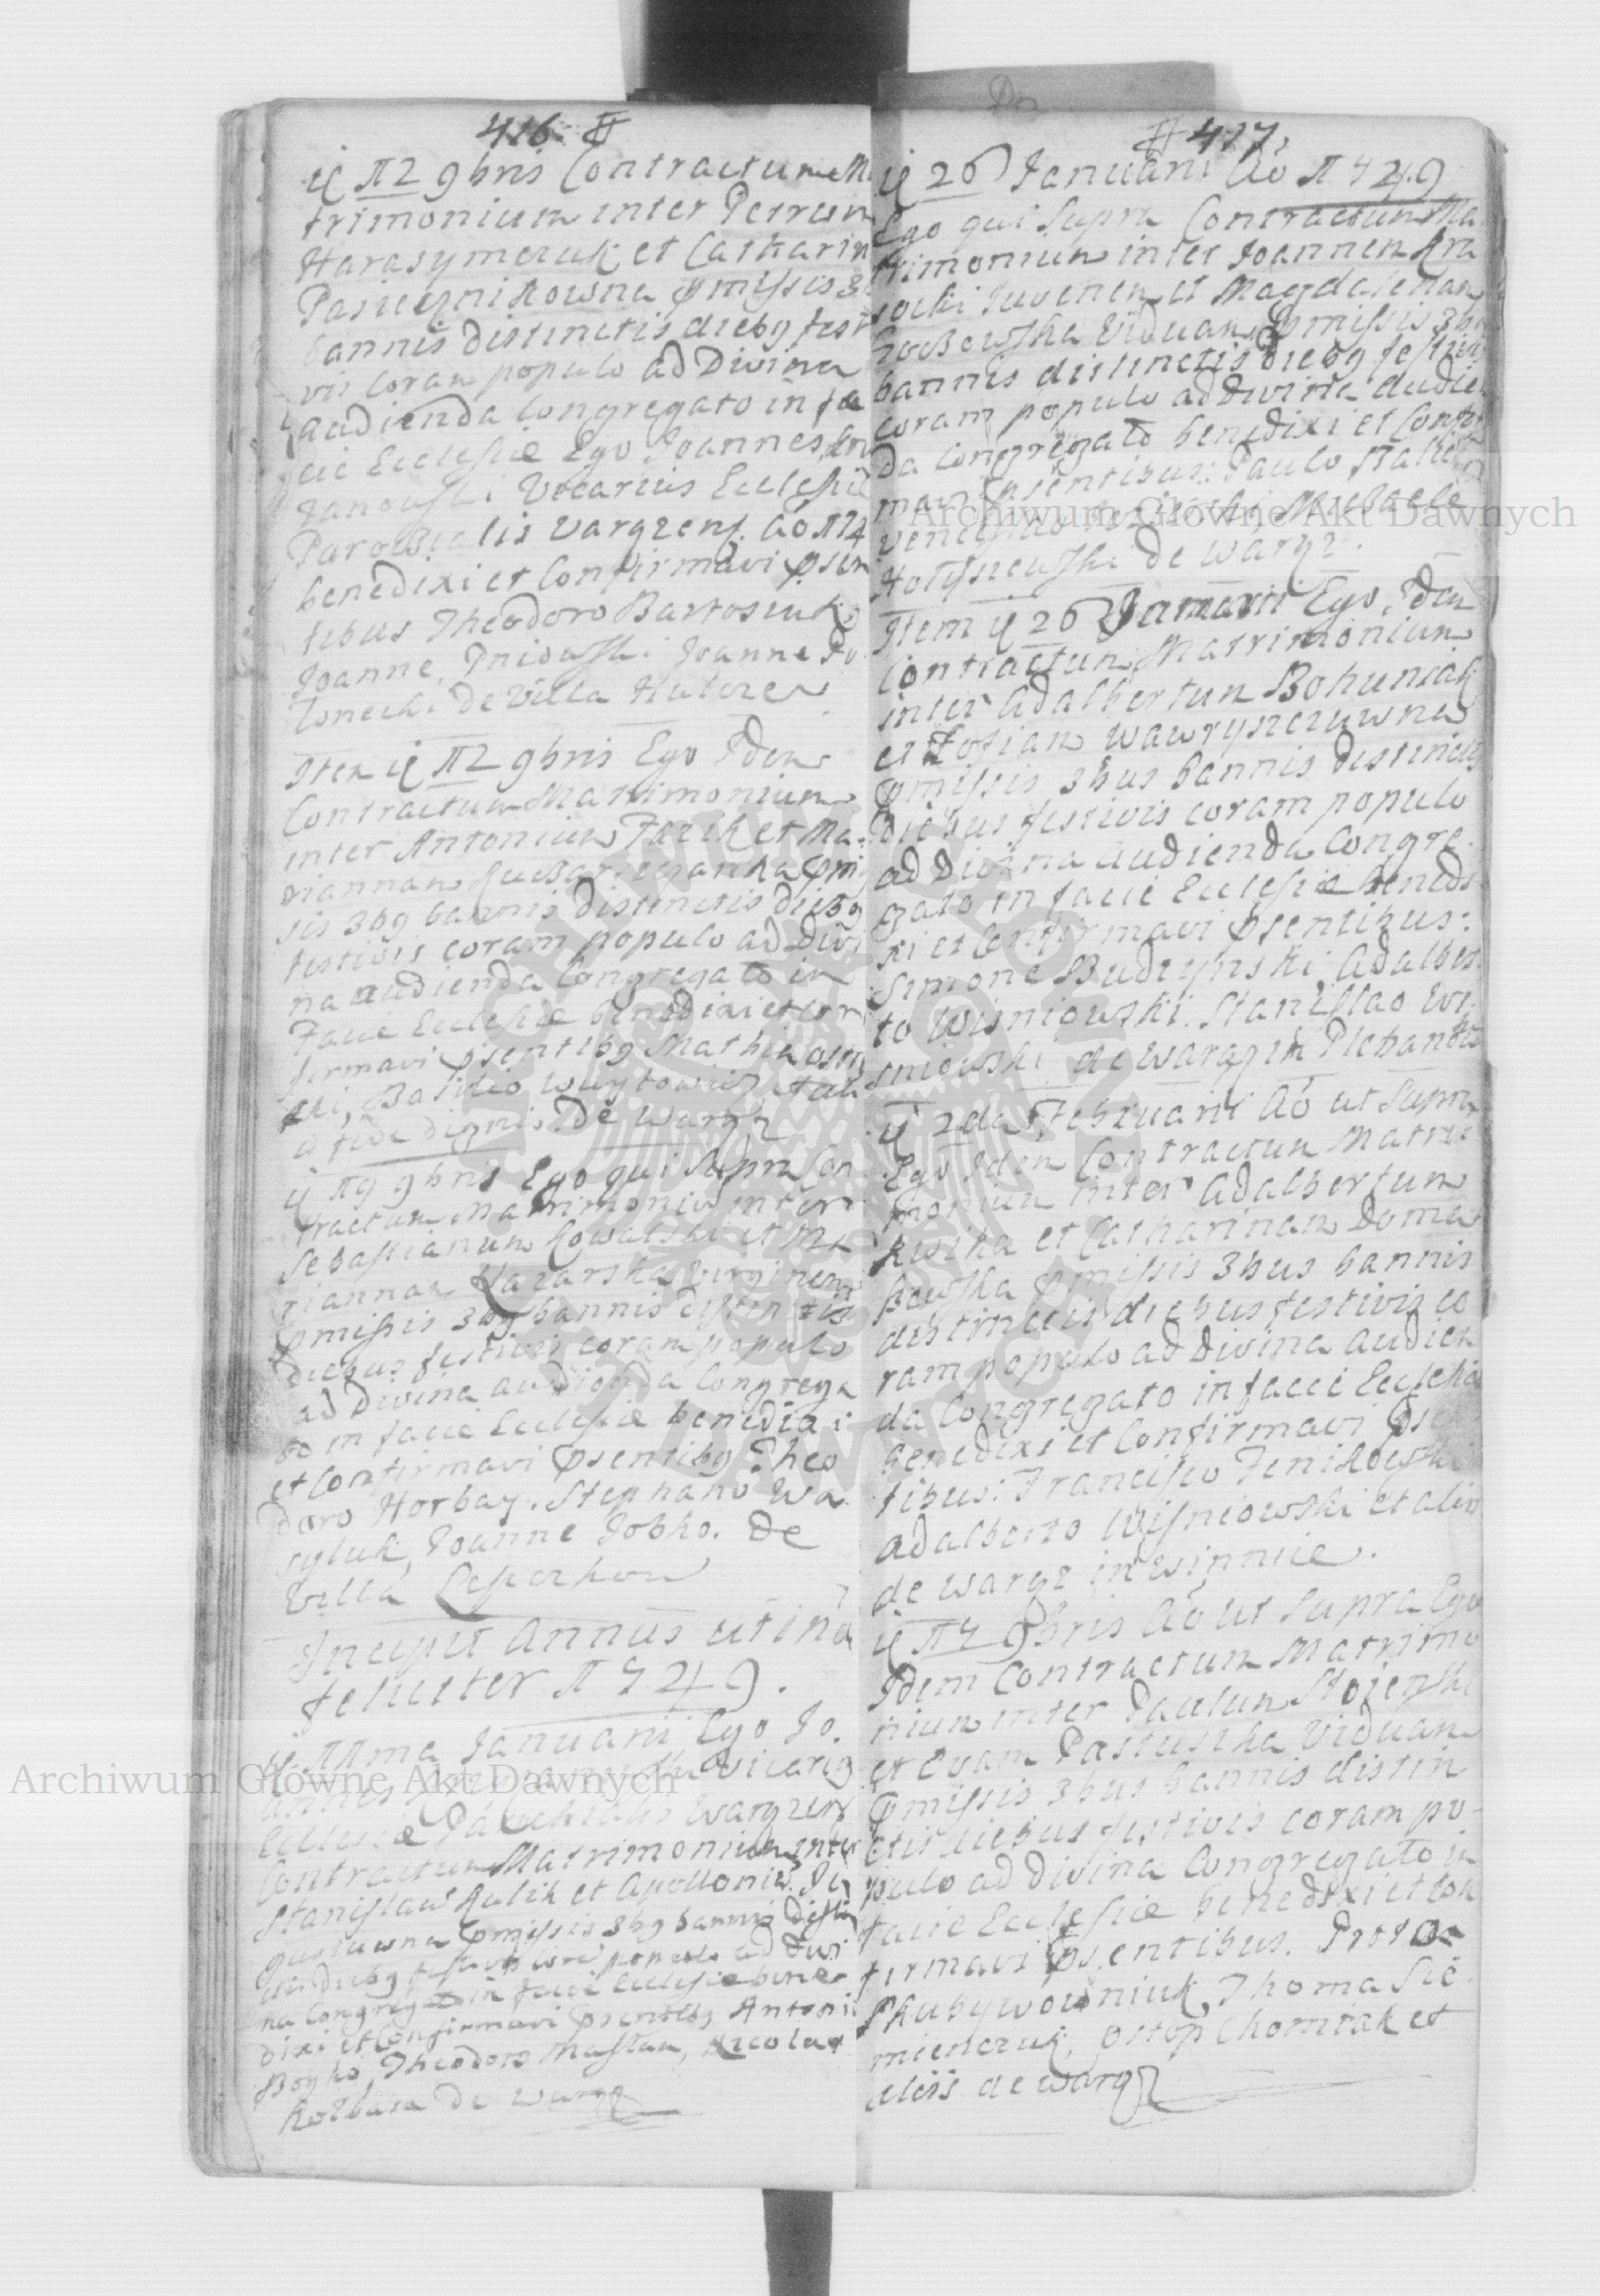 416. #
π2 9bris Contractum Ma
trimonium inter Petrum
Harasymczuk et Catharin
Pasiecznikowna pmissis 3
bannis distinctis dieby festi
vis Coram populo ad Divina
audienda Congregato in fa
cie Ecclesiæ Ego Joannes
Vicarius Ecclesiæ
Parochialis Vargzens. Ao π74
benedixi et Confirmavi psen
tibus Theodoro Bartosiuk
Joanne, Joanne Po
de Villa Hulcze
Item π2 9bris Ego Idem
Contractum Matrimonium
inter Antonium Fazik et Ma.
riannam pmis
sis 3by bannis distinctis dieby
festivis coram populo ad Divi
na audienda Congregato in
Facie Ecclesiæ benedixi et con
firmavi psentiby Mathia
Basilio Woytowicz
fide dignis De Wargz
π9 9bris Ego qui Supra Con
tractum Matrimonium inter
Sebastianum Kowalski et Ma
riannam Virginem
pmissis 3by bannis distinctis
diebus festivis coram populo
ad Divina audienda Congrega
to in facie Ecclesiæ benedixi
et Confirmavi psentiby Theo
doro Horbay. Stephano Wa
syluk, Joanne Bobko. De
Villa
Incipit Annus utina
feliciter π749.
ππma Januarii Ego Jo.
annes Vicariy
Ecclesiæ Parochialis Wargzens
Contractum Matrimonium inter
Stanislaw Kulik et Apollonia
pmissis 3by bannis disti
dieby festivis coram populo ad divi
na Congregato in facie Ecclesiæ bene
dixi et Confirmavi psentiby Antonio
Boyko, Theodoro Nicolao
de Wargz
# 417.
26 Januarii Ao π749
Ego qui Supra Contractum Ma
trimonium inter Joannem Kra
socki Juvenem et Magdalenam
Viduam pmissis 3bus
bannis distinctis dieby festivis
coram populo ad Divina audien
da Congregato benedixi et Confir
mavi psentibus: Paulo
Michaele
de Wargz.
Item 26 Januarii Ego Idem
Contractum Matrimonium
inter Adalbertum Bohuniak
et Zofiam Wawryszczuwna
pmissis 3bus bannis distinctis
Diebus festivis coram populo
ad Divina audienda Congre.
gato in facie Ecclesiæ benedi
xi et Confirmavi psentibus:
Simone Budzynski, Adalber.
to Wisniowski. Stanislao Wi
sniowski de Wargz in Plebania
2da Februarii Ao ut Supra
Ego Idem Contractum Matri
monium inter Adalbertum
Kwika et Catharinam Doma
szewska pmissis 3bus bannis
distinctis diebus festivis co
ram populo ad Divina audien
da Congregato in facie Ecclesiæ
benedixi et Confirmavi psen
tibus: Francisco
Adalberto Wisniowski et aliis
de Wargz in winnice.
π7 9bris Ao ut Supra Ego
Idem Contractum Matrimo
nium inter Paulum Stojenski
et Evam Pastuszka Viduam
pmissis 3bus bannis distin
ctis diebus festivis coram po
pulo ad divina Congregato in
facie Ecclesiæ benedixi et Con
firmavi psentibus.
Thoma Sie
mienczuk, Ostop Chomiak et
aliis de Wargz
Archiwum Główne Akt Dawnych
Archiwum Główne Akt Dawnych